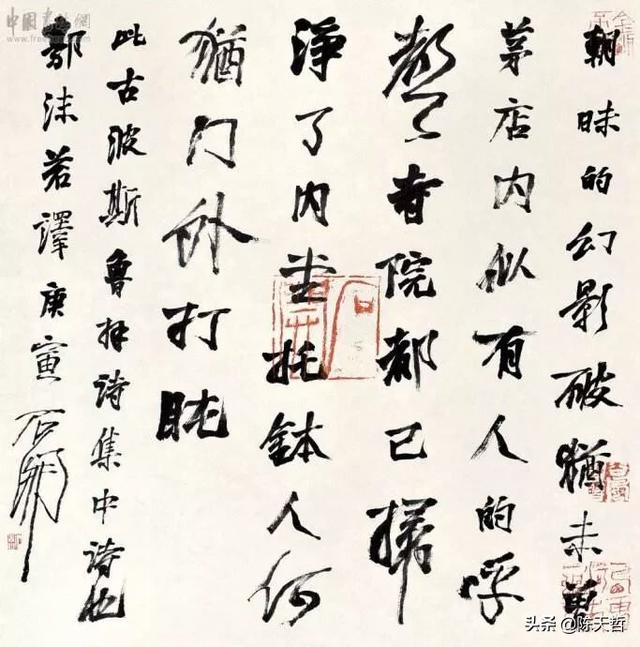 朝昧的幻影破猶未曾
茅店内似有人的呼
聲寺院都已掃
淨了内堂托钵人何
猶门外打盹
此古波斯魯拜詩集中詩也
郭沫若譯庚寅石開
头条 @陈天哲